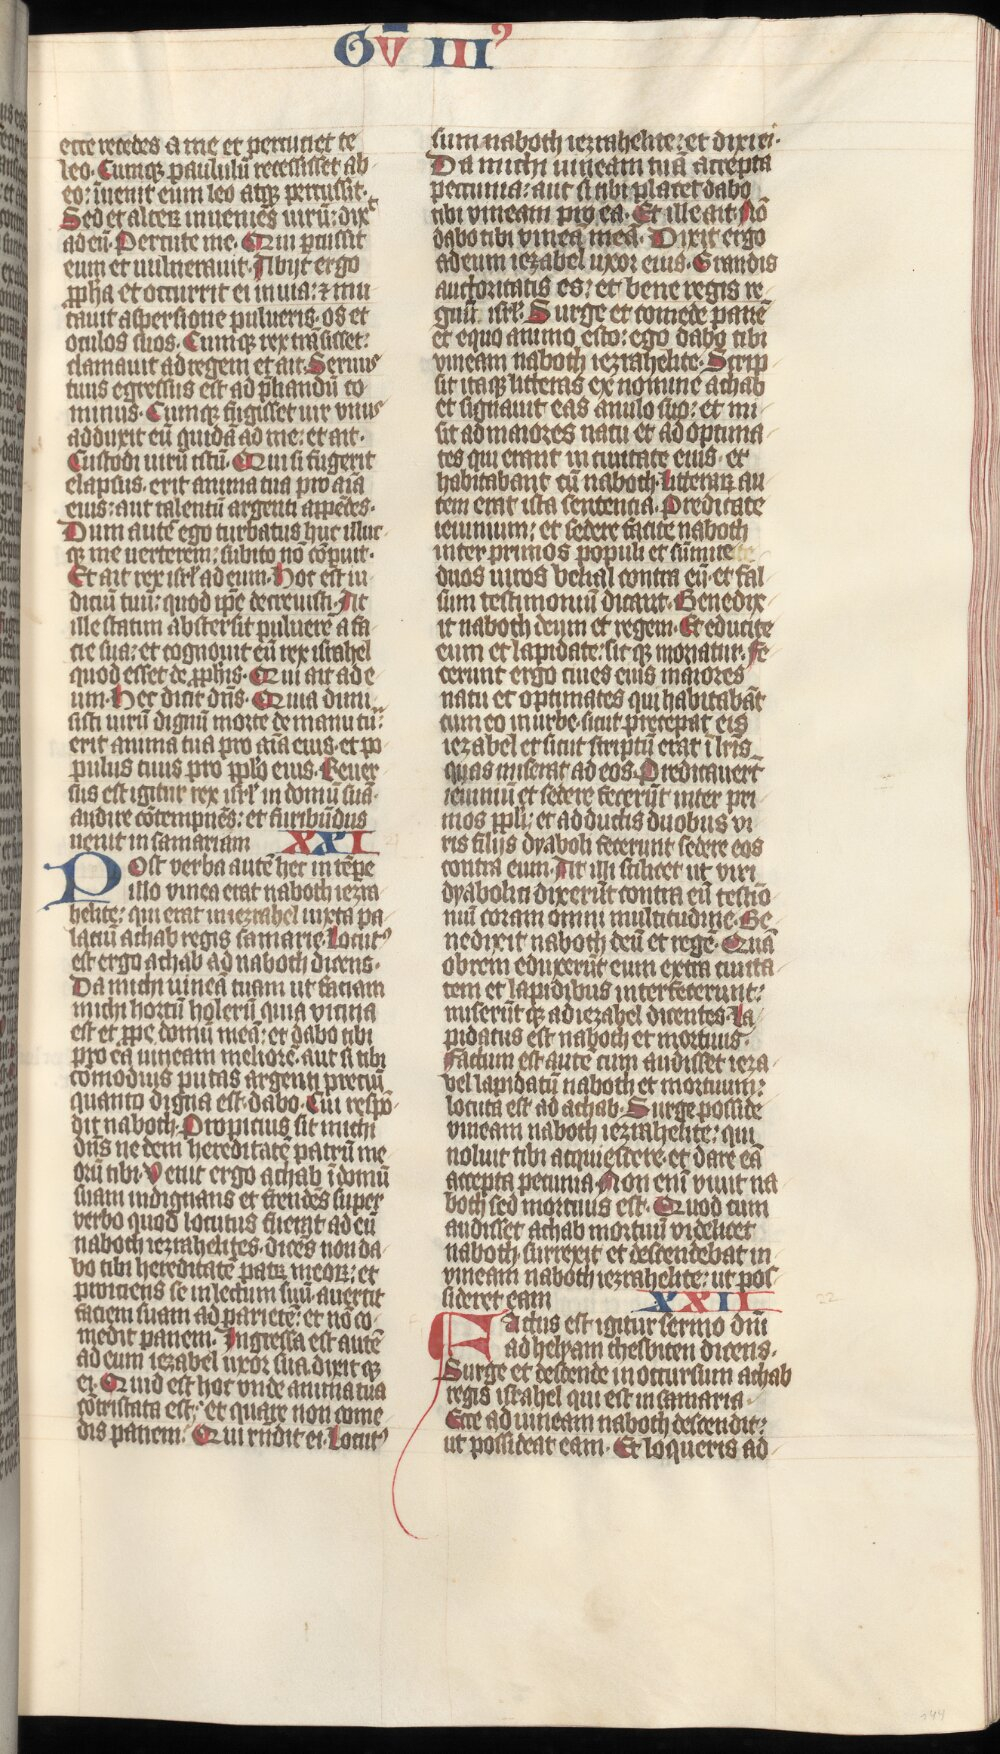 GV̄ IIIꝰ
ecce recedes a me et percuciet te
leo. Cumqꝫ paululū recessisset ab
eo: īuenit eum leo atqꝫ percussit.
Sed et alterꝫ inueniēs uirū: dixͭ
ad eū. Percute me. Qui ꝑcussit
eum et uulnerauit. Abijt ergo
ꝓpha et occurrit ei in uia: ⁊ mu
tauit aspersione pulueris os et
oculos suos. Cumqꝫ rex trāsisset:
clamauit ad regem et ait. Seruus
tuus egressus est ad p̄liandū co
minus. Cumqꝫ fugisset uir vnus
adduxit eū quidā ad me: et ait.
Custodi uirū istū. Qui si fugerit
elapsus. erit anima tua pro aīa
eius: aut talentū argenti appēdes.
Dum autē ego turbatus huc illuc
qꝫ me uerterem: subito nō cōpuit.
Et ait rex isrl̄ ad eum. Hoc est iu
diciū tuū: quod ip̄e decreuisti. At
ille statim abstersit puluerē a fa
cie sua: et cognouit eū rex israhel
quod esset de ꝓphis. Qui ait ad e
um. Hec dicit dn̄s. Quia dimi
sisti uirū dignū morte de manu tua:
erit anima tua pro aīa eius. et po
pulus tuus pro ppl̄o eius. Reuer
sus est igitur rex isrl̄ in domū suā.
audire cōtempnēs: et furibūdus
uenit in samariam XXI
Post verba autē hec in tēpe
illo vinea erat naboth iezra
helite: qui erat in iezrahel iuxta pa
laciū achab regis samarie. Locutꝰ
est ergo achab ad naboth dicens.
Da michi uineā tuam ut faciam
michi hortū holerū quia vicina
est et ꝓpe domū meā: et dabo tibi
pro ea uineam meliorē. aut si tibi
cōmodius putas argenti preciū
quanto digna est. dabo. Cui respō
dit naboth. Propicius sit michi
dn̄s ne dem hereditatē patrū me
orū tibi. Venit ergo achab ī domū
suam indignans et frendēs super
verbo quod locutus fuerat ad eū
naboth iezrahelites. dicēs non da
bo tibi hereditatē patrꝫ meorꝫ: et
proiciens se in lectum suū auertit
faciem suam ad parietē: et nō co
medit panem. Ingressa est autē
ad eum iezabel uxor sua. dixit qꝫ
ei. Quid est hoc vnde anima tua
cōtristata est: et quare non come
dis panem. Qui rn̄dit ei. Locutꝰ
sum naboth iezrahelite: et dixi ei.
Da michi uineam tuā accepta
peccunia: aut si tibi placet dabo
tibi vineam pro ea. Et ille ait. Nō
dabo tibi vineā meā. Dixit ergo
ad eum iezabel uxor eius. Grandis
auctoritatis es: et bene regis re
gnū isrl̄. Surge et comede panē
et equo animo esto: ego dabo tibi
vineam naboth iezrahelite. Scrip
sit itaqꝫ litteras ex nomine achab
et signauit eas anulo suo: et mi
sit ad maiores natu et ad optima
tes qui erant in ciuitate eius. et
habitabant cū naboth. Litterarꝫ au
tem erat ista sentencia. Predicate
ieiunium: et sedere facite naboth
inter primos populi et sūmite
duos uiros belial contra eū. et fal
sum testimoniū dicant. Benedix
it naboth deum et regem. Et educite
eum et lapidate: sit qꝫ moriatur. Fe
cerunt ergo ciues eius maiores
natu et optimates qui habitabāt
cum eo in urbe. sicut precepat eis
iezabel et sicut scriptū erat ī lr̄is
quas miserat ad eos. Predicauert̄
ieiuniū et sedere fecerūt inter pri
mos ppl̄i: et adductis duobus vi
ris filijs dyaboli fecerunt sedere eos
contra eum. At illi scilicet ut viri
dyabolici dixerūt contra eū testīo
niū coram omni multitudine. Be
nedixit naboth deū et regē. Quā
obrem eduxerūt eum extra ciuita
tem et lapidibus interfecerunt:
miserūt qꝫ ad iezabel dicentes. La
pidatus est naboth et mortuus.
Factum est autē cum audisset ieza
bel lapidatū naboth et mortuum:
locuta est ad achab. Surge posside
vineam naboth iezrahelite: qui
noluit tibi acquiescere. et dare eā
accepta pecunia. Non enī viuit na
both sed mortuus est. Quod cum
audisset achab mortuū videlicet
naboth. surrexit et descendebat in
vineam naboth iezrahelite: ut pos
sideret eam XXII 22
Factus est igitur sermo dn̄i
ad helyam thesbiten dicens.
Surge et descende in occursum achab
regis israhel qui est in samaria.
Ecce ad uineam naboth descendit:
ut possideat eam. Et loqueris ad
244